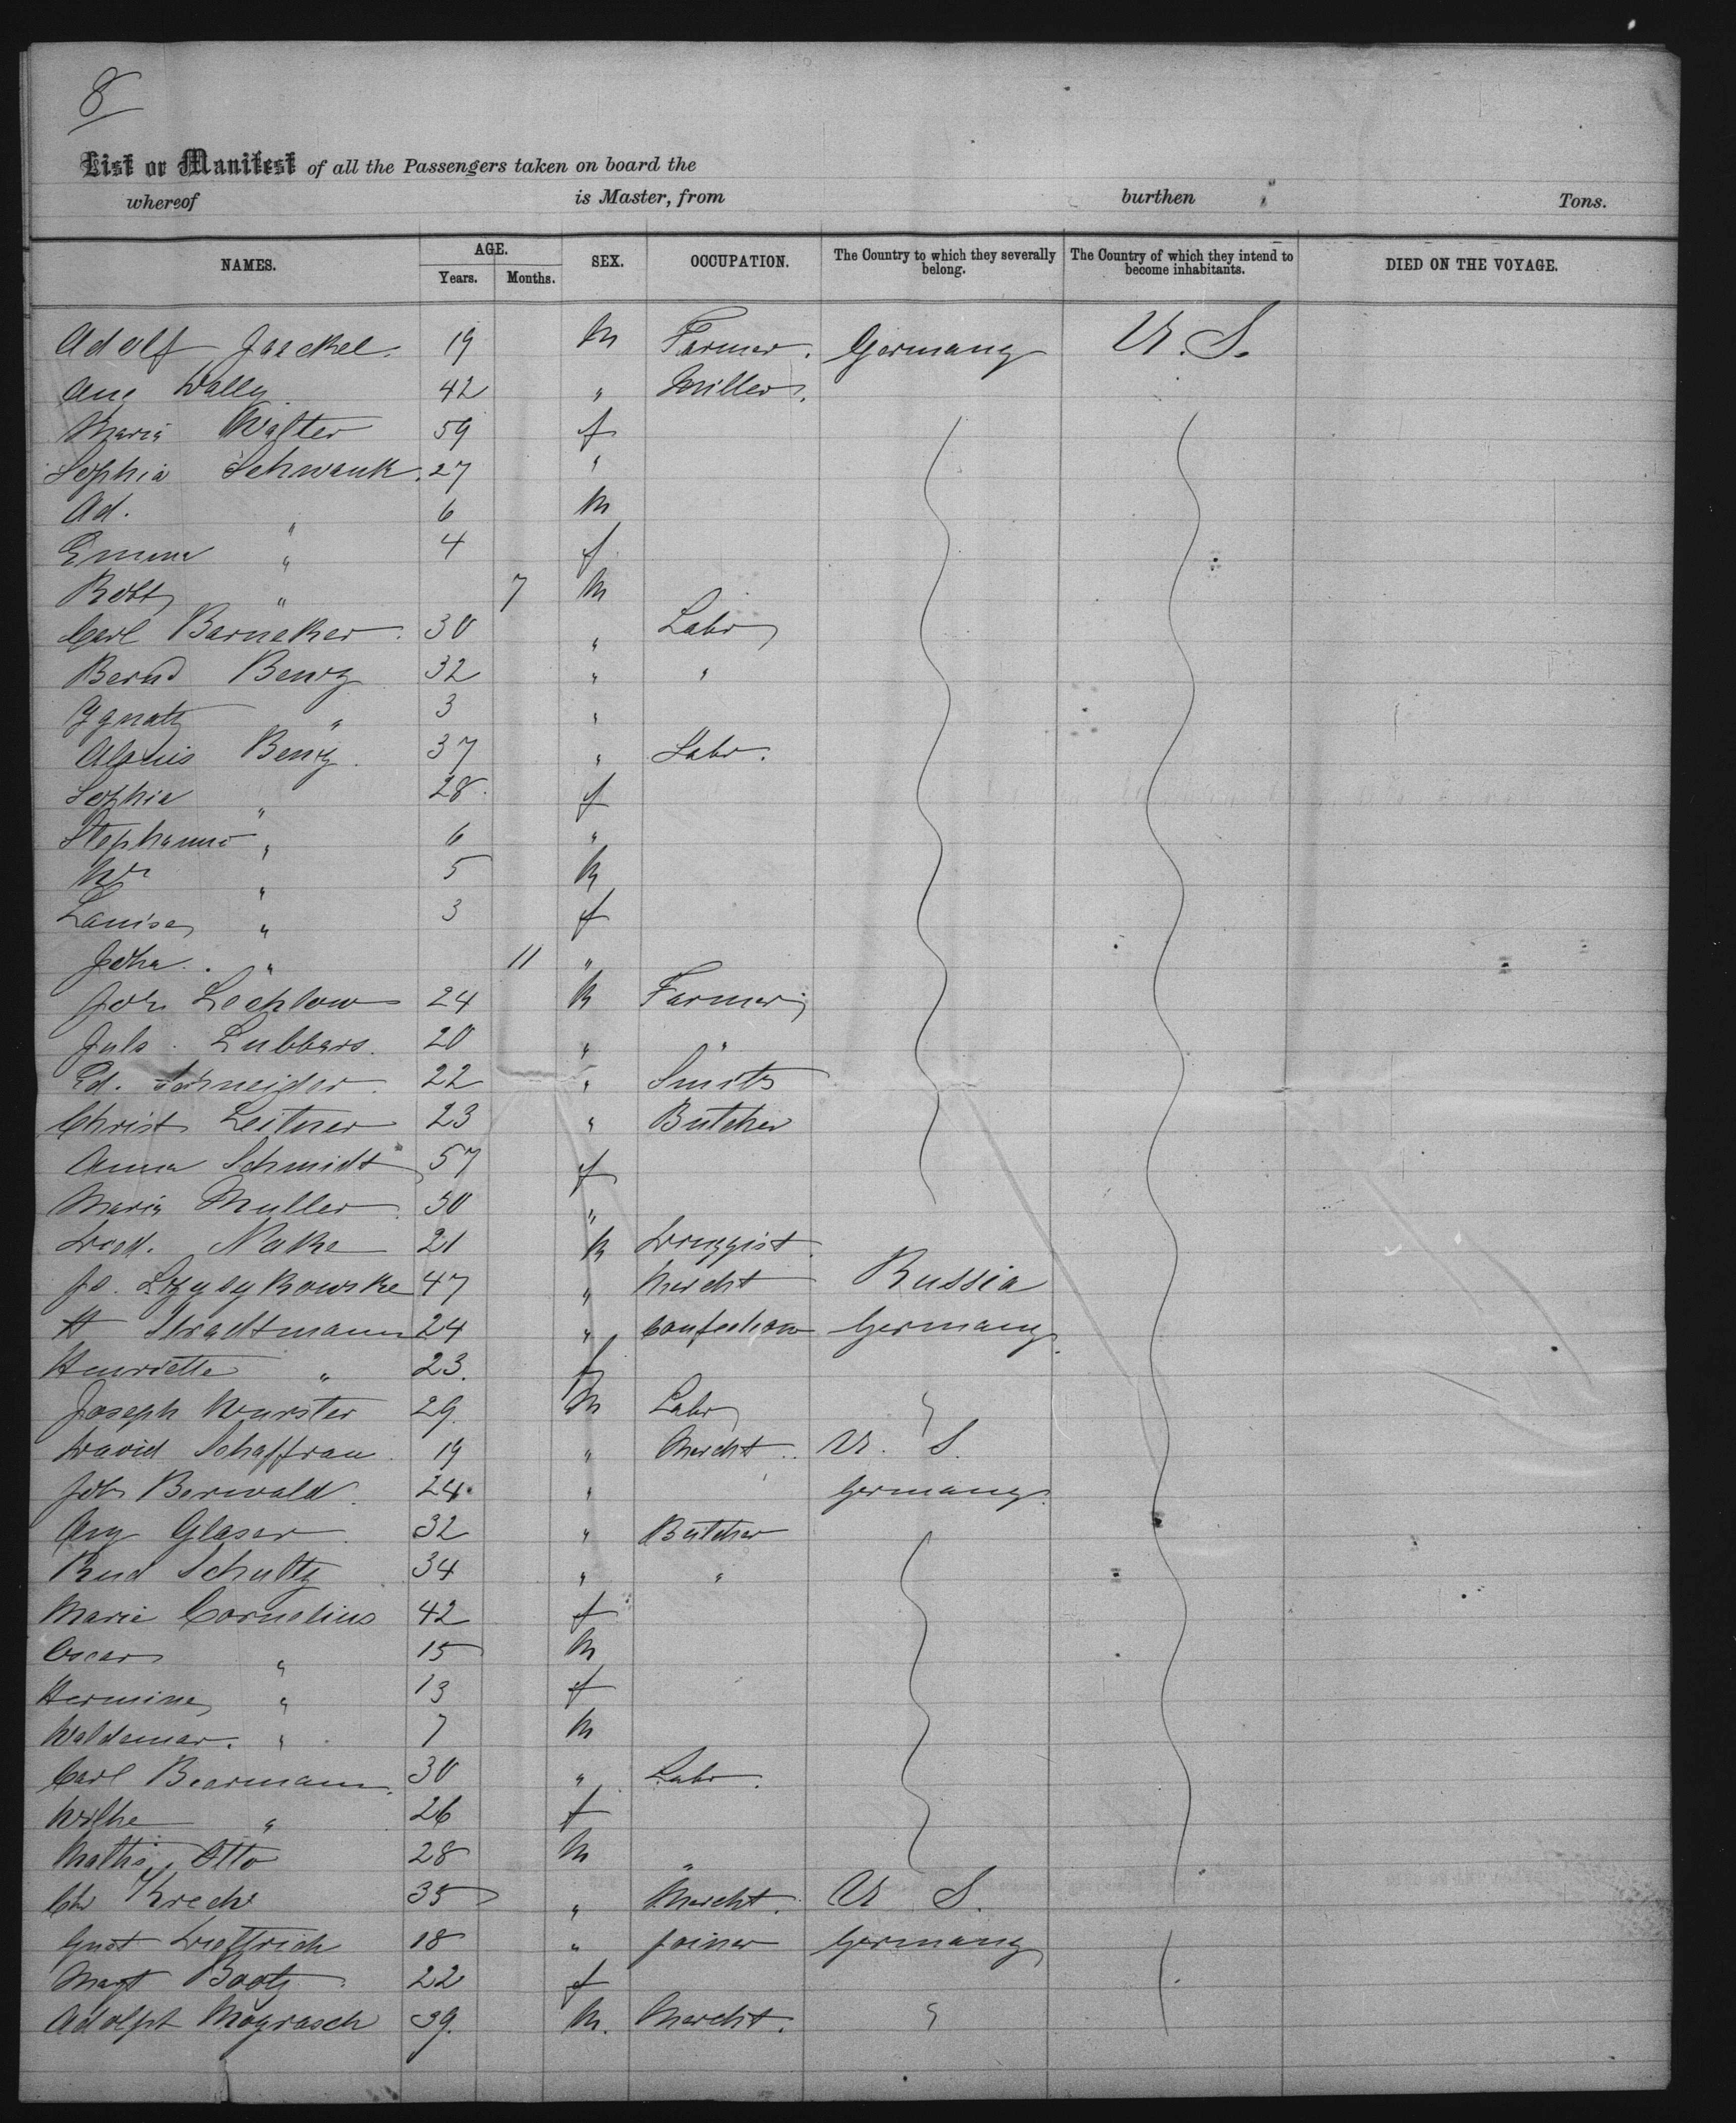 8
List or Manifest of all the Passengers taken on board the
whereof is Master, from burthen Tons.
NAMES. AGE. Years. Months. SEX. OCCUPATION. The Country to which they severally belong. The Country of which they intend to become inhabitants. DIED ON THE VOYAGE.
Adolf Jaeckel. 19 M Farmer. Germany U. S.
Aug Wally. 42 " Miller.
Maria Walter 59 f
Sophia Schwenk. 27 "
Ad. " 6 M
Emma " 4 f
Robt " 7 M
Carl Barneker. 30 " Labr
Bernd Benz 32 " "
Ygnatz " 3 "
Alouis Benz. 37 " Labr.
Sophie " 28. f
Stephanie " 6 "
Wm " 5 M
Louise " 3 f
Joha. " 11 "
Joh Lechlow 24 M Farmer
Juls. Lubbers. 20 " "
Ed. Schneider. 22 " Smith
Christ Leitner 23 " Butcher
Anna Schmidt 57 f
Maria Muller. 30 "
Died. Nake 21 M Druggist.
Jo. 47 " Mercht Russia
H Stradtmann 24 " Confection Germany.
Henriette " 23. f
Joseph Wurster 29. M Labr "
David Schaffran. 19 " Mercht.. U. S.
Joh Berwald. 24. " Germany.
Aug Glaser. 32 " Butcher
Rud Schultz 34 " "
Marie Cornelius 42 f
Oscar " 15 M
Hermine " 13 f
Waldemar. " 7 M
Carl Biermann. 30 " Labr.
Wilhe " 26 f
Mathi. Otto 28 M "
Ch Krech 35 " Mercht. U S.
Gust Diettrich 18 " Joiner Germany
Magt Bootz. 22 f
Adolph Mögrasch 39. M. Mercht. "